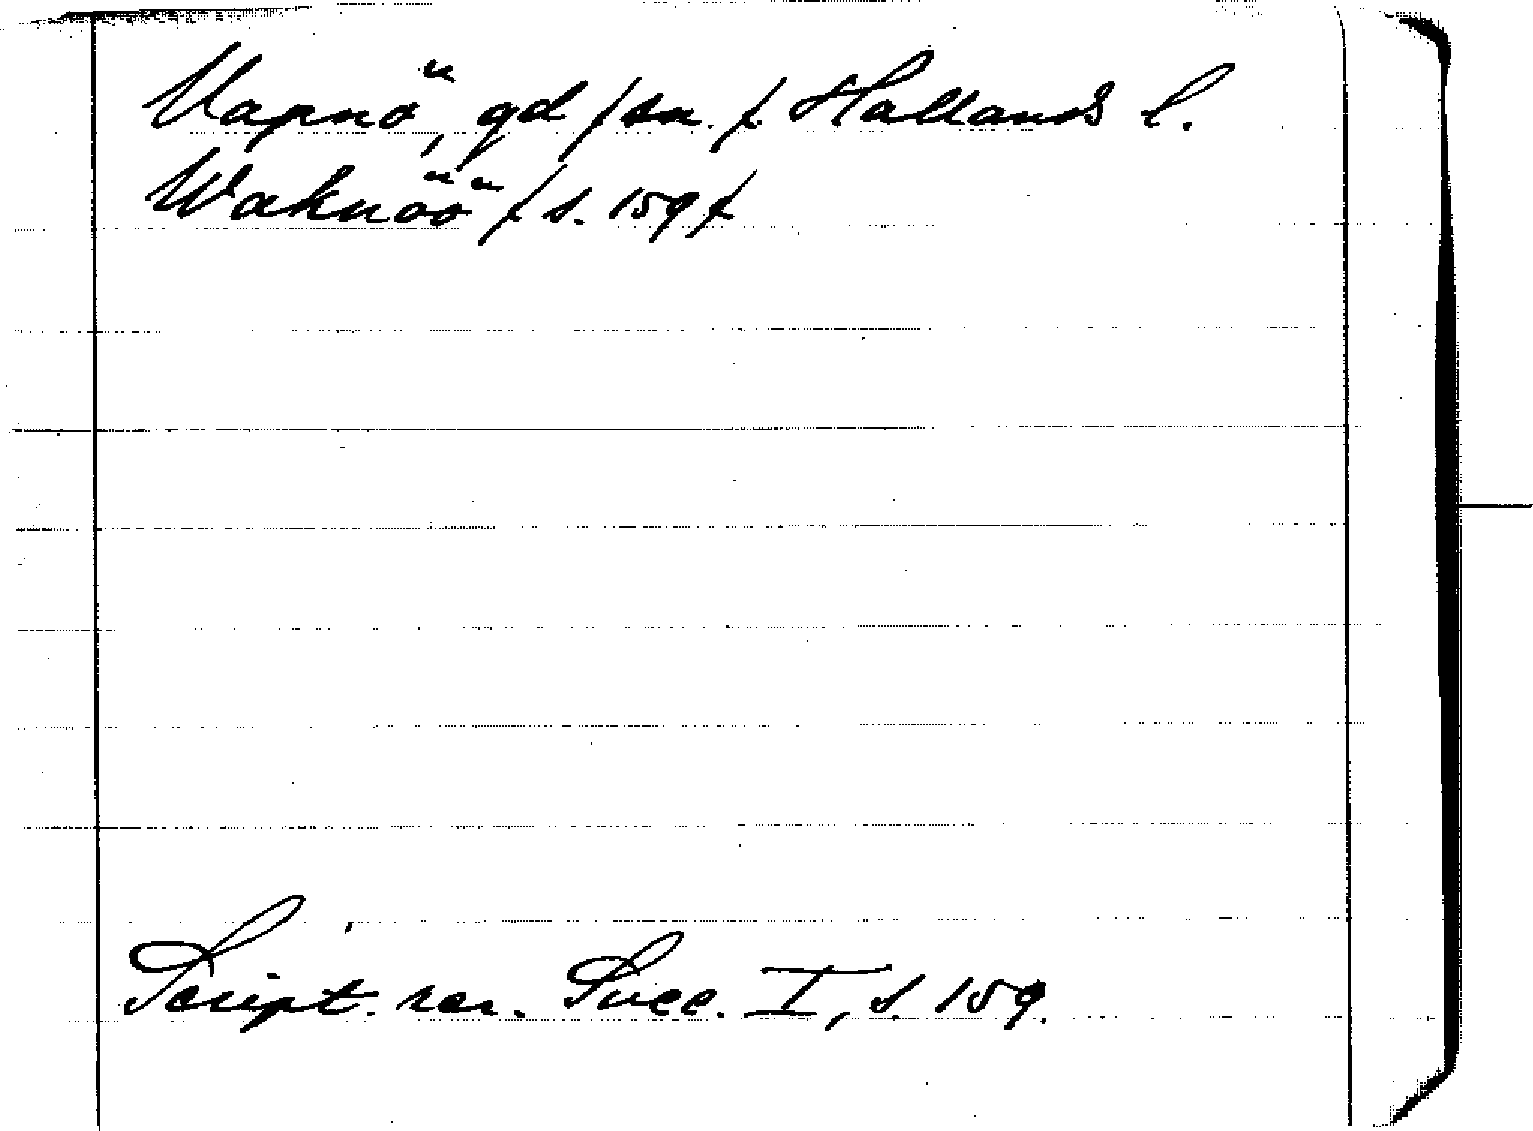 Vapnö, gd /sn./ Hallands l.
Waknöö /s. 159/
Script. rer. Svec. I, s. 159.